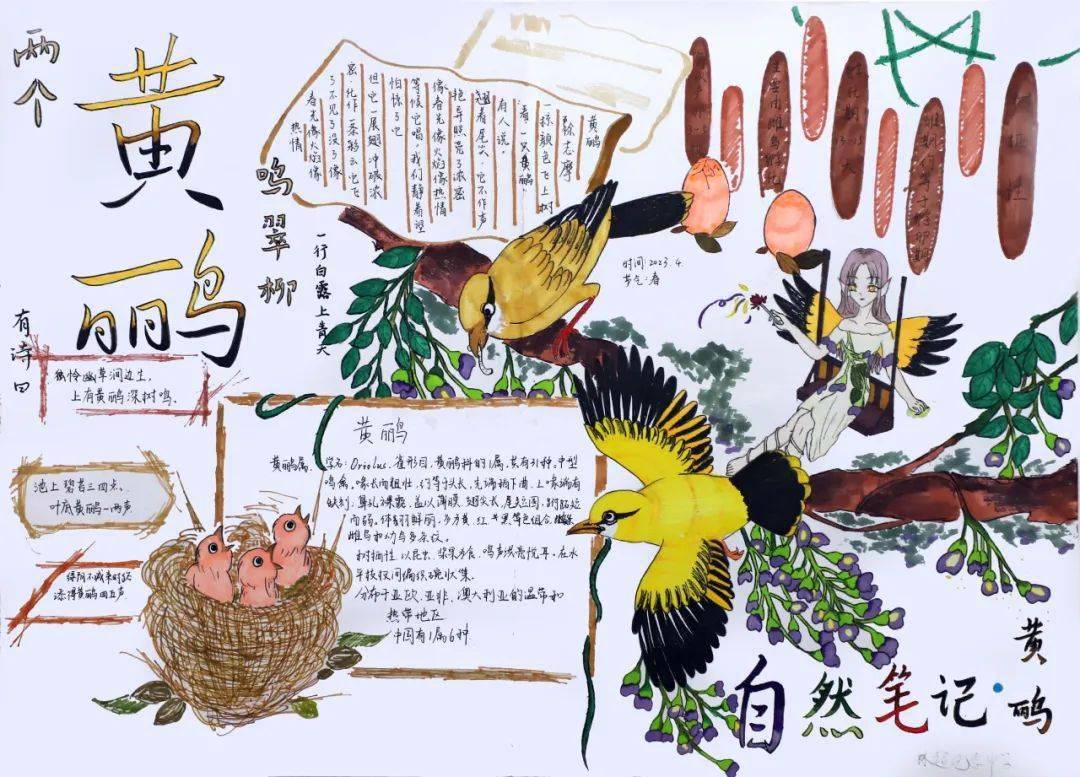 两个
黄鹂
鸣翠柳
一行白鹭上青天
有诗曰
独怜幽草涧边生，
上有黄鹂深树鸣。
池上碧苔三四点，
叶底黄鹂一两声
绿阴不减来时路
添得黄鹂四五声
黄鹂
徐志摩
一掠颜色飞上树
看，一只黄鹂
有人说。
翘着尾尖，它不作声
艳异照亮了浓密
像春光像火焰像热情
等候它唱，我们静着望
怕惊了它
但它一展翅冲破浓
密，化作一朵彩云它飞
了不见了没了像
春光像火焰像
热情
时间：2023.4.
节气：春
黄鹂
黄鹂属，学名：Oriolus，雀形目，黄鹂科的1属，共有31种。中型
鸣禽，喙长而粗壮，约等于头长，先端稍下曲，上喙端有
缺刻，鼻孔裸露，盖以薄膜，翅尖长，尾短圆，跗跖短
而弱，体羽鲜丽，多为黄、红、黑等色组合
雌鸟和幼鸟多条纹。
树栖性，以昆虫、浆果为食，鸣声洪亮悦耳，在水
平枝杈间编织碗状巢。
分布于亚欧、亚非、澳大利亚的温带和
热带地区
中国有1属6种
自然笔记
黄鹂